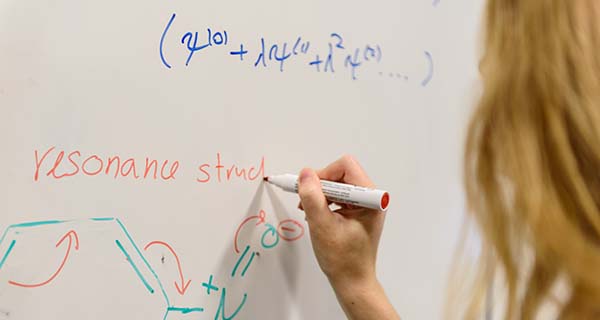 (ψ⁽⁰⁾ + λψ⁽¹⁾ + λ²ψ⁽²⁾ ....)
resonance struct
O ⊖
+ N